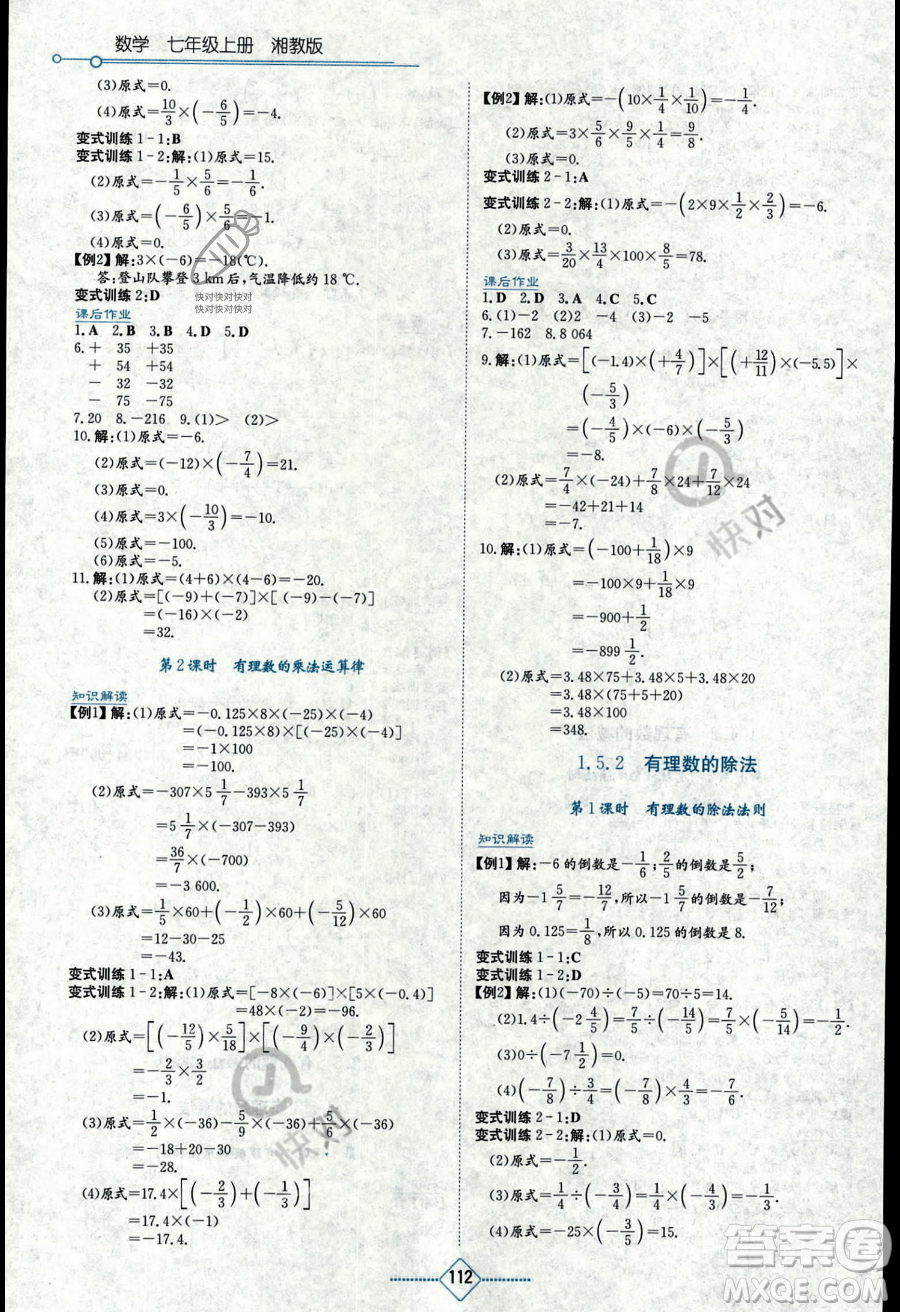 数学 七年级上册 湘教版
(3)原式=0.
(4)原式=10/3×(-6/5)=-4.
变式训练1-1:B
变式训练1-2:解:(1)原式=15.
(2)原式=-1/5×5/6=-1/6.
(3)原式=(-6/5)×5/6=-1.
(4)原式=0.
【例2】解:3×(-6)=-18(℃).
答:登山队攀登3 km后,气温降低约18 ℃.
变式训练2:D
快对快对快对
快对快对快对
课后作业
1.A 2.B 3.B 4.D 5.D
6.+ 35 +35
+ 54 +54
- 32 -32
- 75 -75
7.20 8.-216 9.(1)> (2)>
10.解:(1)原式=-6.
(2)原式=(-12)×(-7/4)=21.
(3)原式=0.
(4)原式=3×(-10/3)=-10.
(5)原式=-100.
(6)原式=-5.
11.解:(1)原式=(4+6)×(4-6)=-20.
(2)原式=[(-9)+(-7)]×[(-9)-(-7)]
=(-16)×(-2)
=32.
第2课时 有理数的乘法运算律
知识解读
【例1】解:(1)原式=-0.125×8×(-25)×(-4)
=(-0.125×8)×[(-25)×(-4)]
=-1×100
=-100.
(2)原式=-307×5 1/7-393×5 1/7
=5 1/7×(-307-393)
=36/7×(-700)
=-3 600.
(3)原式=1/5×60+(-1/2)×60+(-5/12)×60
=12-30-25
=-43.
变式训练1-1:A
变式训练1-2:解:(1)原式=[-8×(-6)]×[5×(-0.4)]
=48×(-2)=-96.
(2)原式=[(-12/5)×5/18]×[(-9/4)×(-2/3)]
=-2/3×3/2
=-1.
(3)原式=1/2×(-36)-5/9×(-36)+5/6×(-36)
=-18+20-30
=-28.
(4)原式=17.4×[(-2/3)+(-1/3)]
=17.4×(-1)
=-17.4.
【例2】解:(1)原式=-(10×1/4×1/10)=-1/4.
(2)原式=3×5/6×9/5×1/4=9/8.
(3)原式=0.
变式训练2-1:A
变式训练2-2:解:(1)原式=-(2×9×1/2×2/3)=-6.
(2)原式=0.
(3)原式=3/20×13/4×100×8/5=78.
课后作业
1.D 2.D 3.A 4.C 5.C
6.(1)-2 (2)2 (3)-2 (4)-5
7.-162 8.8 064
9.解:(1)原式=[(-1.4)×(+4/7)]×[(+12/11)×(-5.5)]×
(-5/3)
=(-4/5)×(-6)×(-5/3)
=-8.
(2)原式=7/4×(-24)+7/8×24+7/12×24
=-42+21+14
=-7.
10.解:(1)原式=(-100+1/18)×9
=-100×9+1/18×9
=-900+1/2
=-899 1/2.
(2)原式=3.48×75+3.48×5+3.48×20
=3.48×(75+5+20)
=3.48×100
=348.
1.5.2 有理数的除法
第1课时 有理数的除法法则
知识解读
【例1】解:-6的倒数是-1/6;2/5的倒数是5/2;
因为-1 5/7=-12/7,所以-1 5/7的倒数是-7/12;
因为0.125=1/8,所以0.125的倒数是8.
变式训练1-1:C
变式训练1-2:D
【例2】解:(1)(-70)÷(-5)=70÷5=14.
(2)1.4÷(-2 4/5)=7/5÷(-14/5)=7/5×(-5/14)=-1/2.
(3)0÷(-7 1/2)=0.
(4)(-7/8)÷(-7/8)=7/8÷7/8=7/8×8/7=1.
变式训练2-1:D
变式训练2-2:解:(1)原式=0.
(2)原式=-1/2.
(3)原式=1/4÷(-3/4)=1/4×(-4/3)=-1/3.
(4)原式=-25×(-3/5)=15.
112
快对
快对
答案圈
MXQE.COM